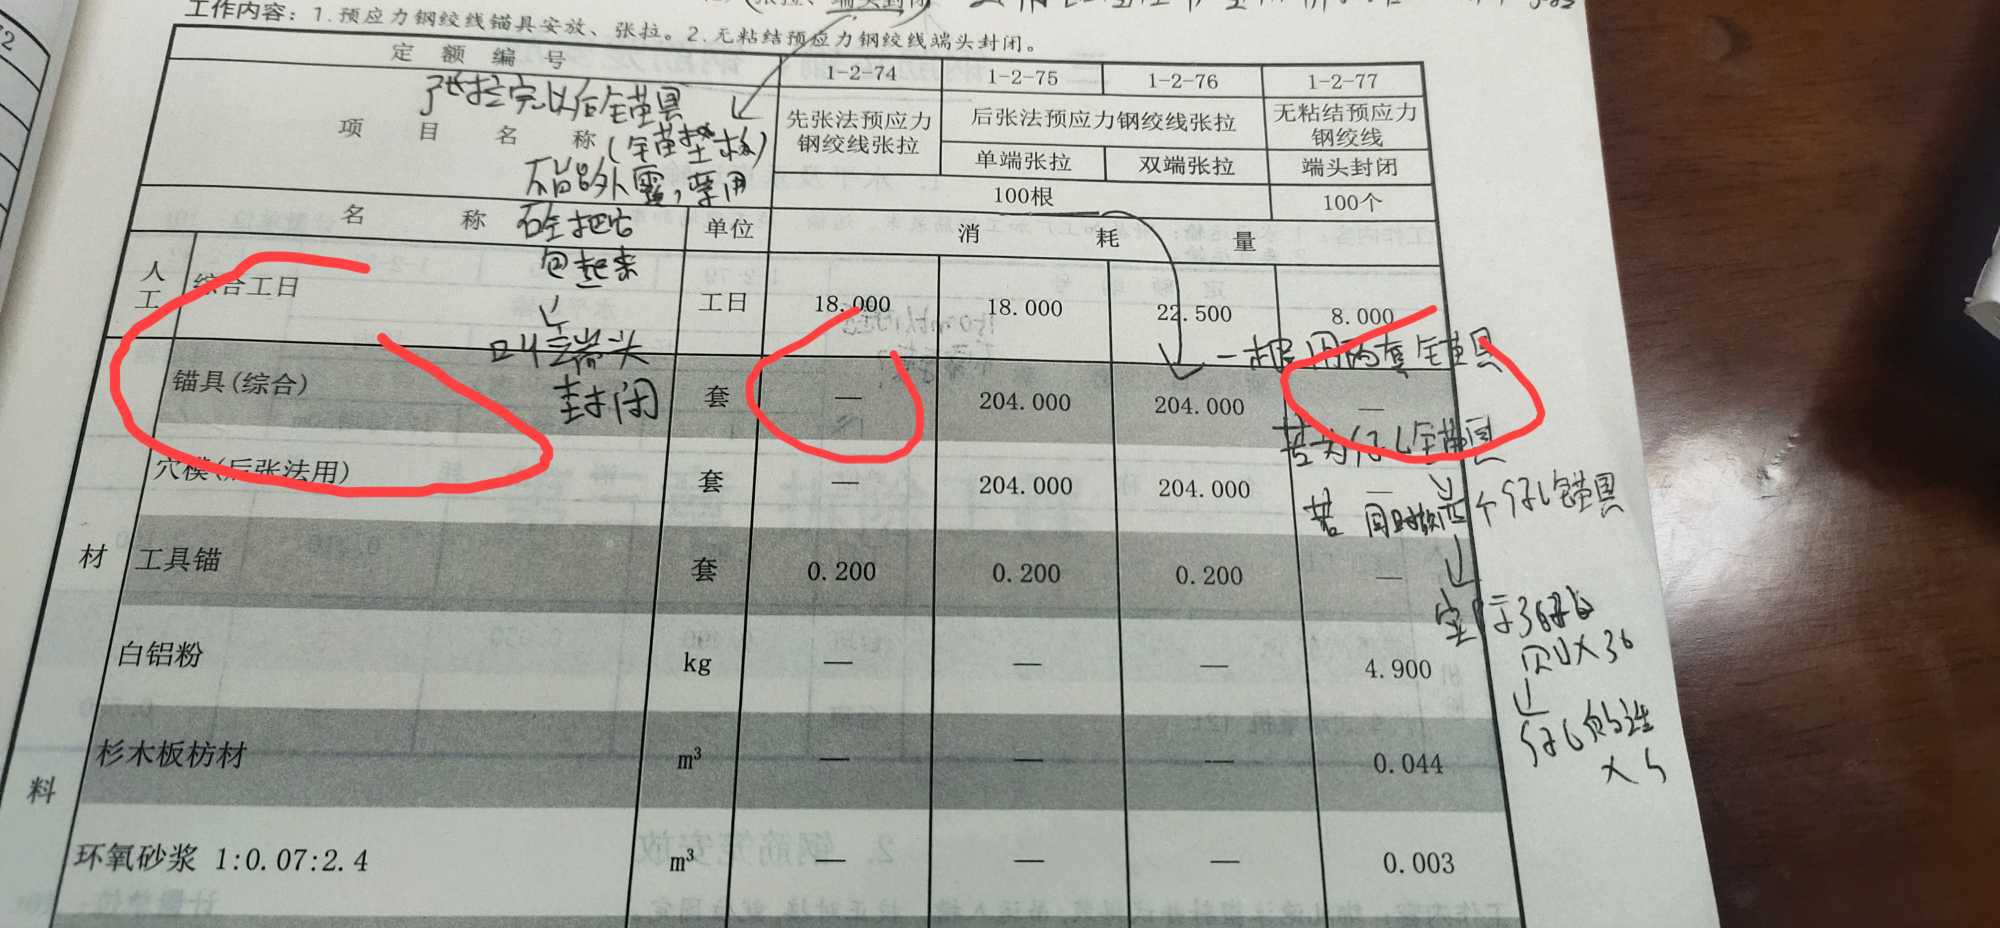 工作内容：1.预应力钢绞线锚具安放、张拉。2.无粘结预应力钢绞线端头封闭。
定额编号 1-2-74 1-2-75 1-2-76 1-2-77
张拉完以后锚具
项目名称 先张法预应力钢绞线张拉 后张法预应力钢绞线张拉 无粘结预应力钢绞线
(锚垫板)
单端张拉 双端张拉 端头封闭
不能外露，要用
100根 100个
名称 单位 消耗量
砼把它
包起来
人工 综合工日 工日 18.000 18.000 22.500 8.000
叫端头
封闭
一根用两套锚具
锚具(综合) 套 — 204.000 204.000 —
若为5孔锚具
穴模(后张法用) 套 — 204.000 204.000 —
若 同时 个5孔锚具
材料
工具锚 套 0.200 0.200 0.200 —
白铝粉 kg — — — 4.900
则×36
杉木板枋材 m³ — — — 0.044
5孔的
×5
环氧砂浆 1:0.07:2.4 m³ — — — 0.003